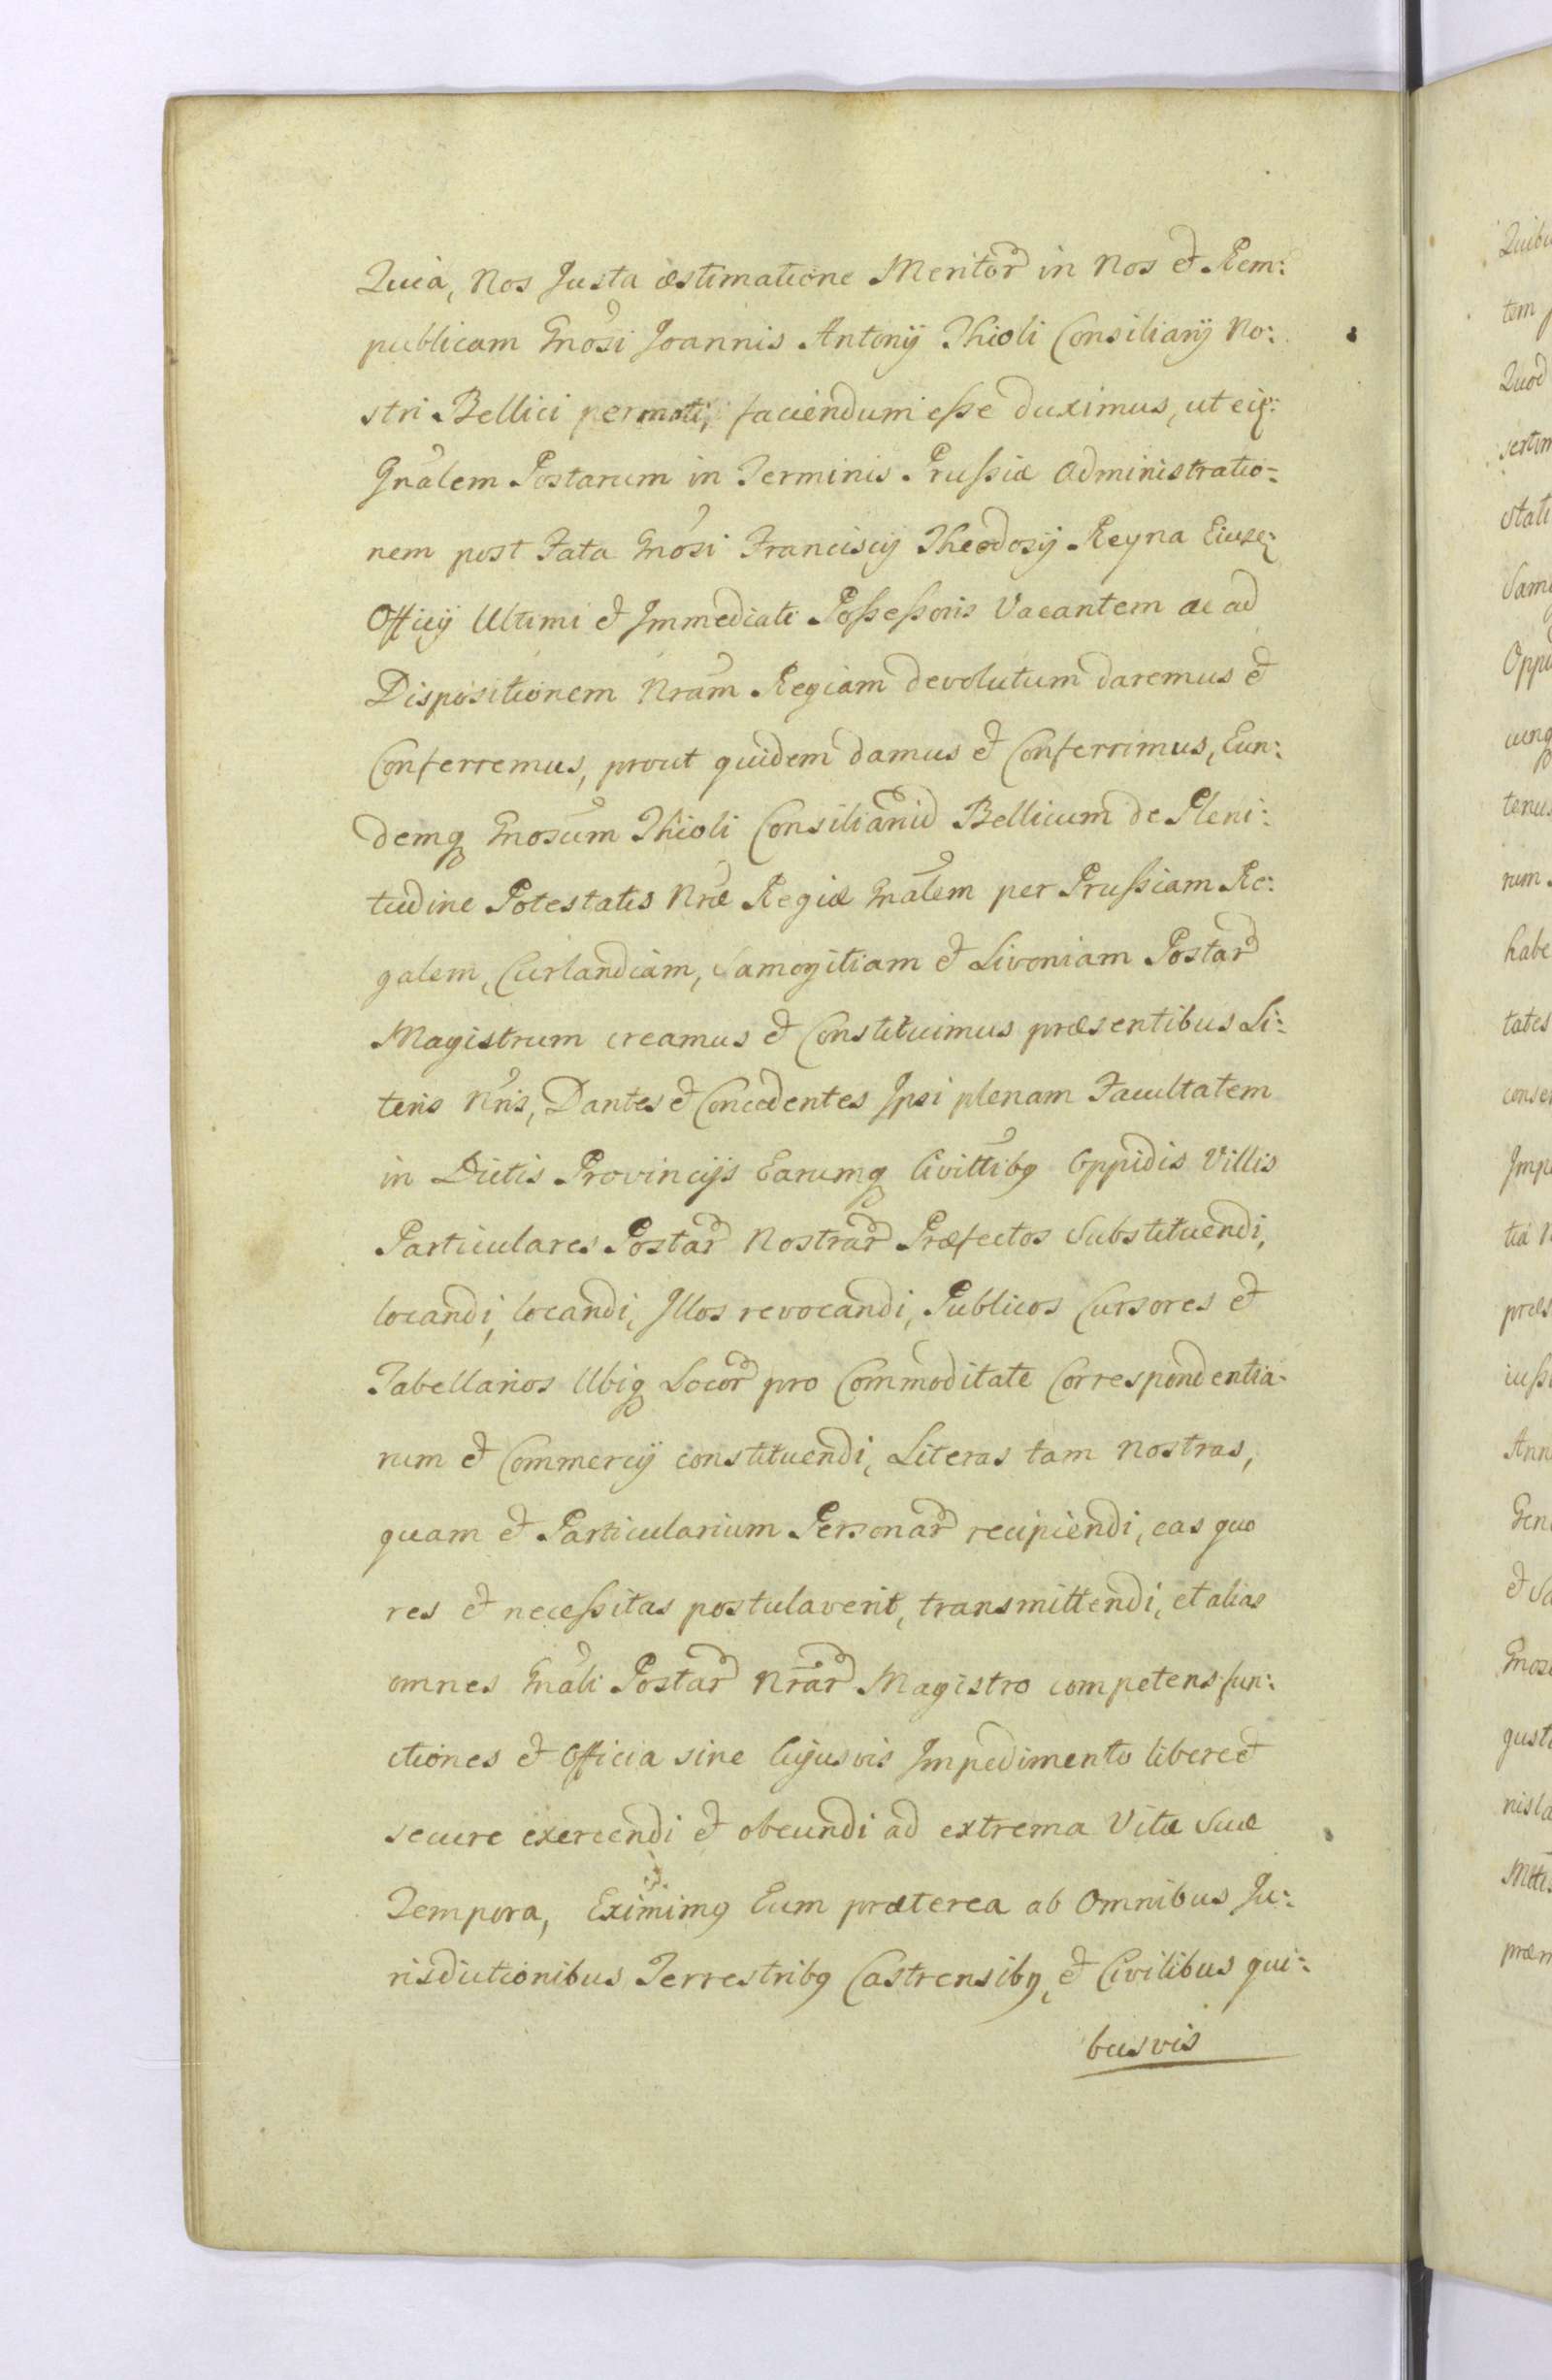 Quia, Nos Justa æstimatione Meritor in Nos et Rem:
publicam Gnosi Joannis Antonij Thioli Consiliarij No:
stri Bellici permoti, faciendum esse duximus, ut ei
Gnalem Postarum in Terminis Prussiæ Administratio:
nem post Fata Gnosi Franciscij Theodosij Reyna Eiusq
Officij Ultimi et Immediati Possessoris Vacantem ac ad
Dispositionem Nram Regiam devolutum daremus et
Conferremus, prout quidem damus et Conferrimus, Eun:
demq Gnosum Thioli Consiliariu Bellicum de Pleni:
tudine Potestatis Nræ Regiæ Gnalem per Prussiam Re:
galem, Curlandiam, Samogitiam et Livoniam Postar
Magistrum creamus et Constituimus præsentibus Li:
teris Nris, Dantes et Concedentes Ipsi plenam Facultatem
in Dictis Provincijs Earumq Civittibq Oppidis Villis
Particulares Postar Nostrar Præfectos Substituendi,
locandi, locandi, Illos revocandi, Publicos Cursores et
Tabellarios Ubiq Locor pro Commoditate Correspondentia-
rum et Commercij constituendi, Literas tam Nostras,
quam et Particularium Personar recipiendi, eas quo
res et necessitas postulaverit, transmittendi, et alias
omnes Gnali Postar Nrar Magistro competens fun:
ctiones et Officia sine Cujusvis Impedimento libere et
secure exercendi et obeundi ad extrema Vitæ Suæ
Tempora, Eximimq Eum præterea ab Omnibus Ju:
risdictionibus Terrestribq Castrensibq, et Civilibus qui:
busvis